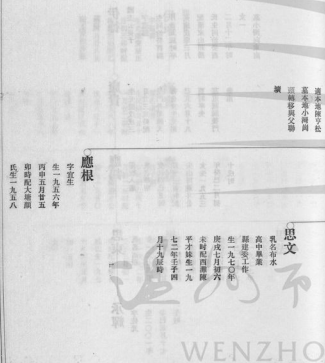 適本地陳亨松
墓本地小湖崗
頭轉移與父聯
壙
思文
乳名布水
高中畢業
縣建委工作
生一九七〇年
庚戌七月初六
未時配西灘陳
平才妹生一九
七二年壬子四
月十九辰時
應根
字宜生
生一九五六年
丙申五月廿五
卯時配大塘顏
氏生一九五八
温州市
WENZHO